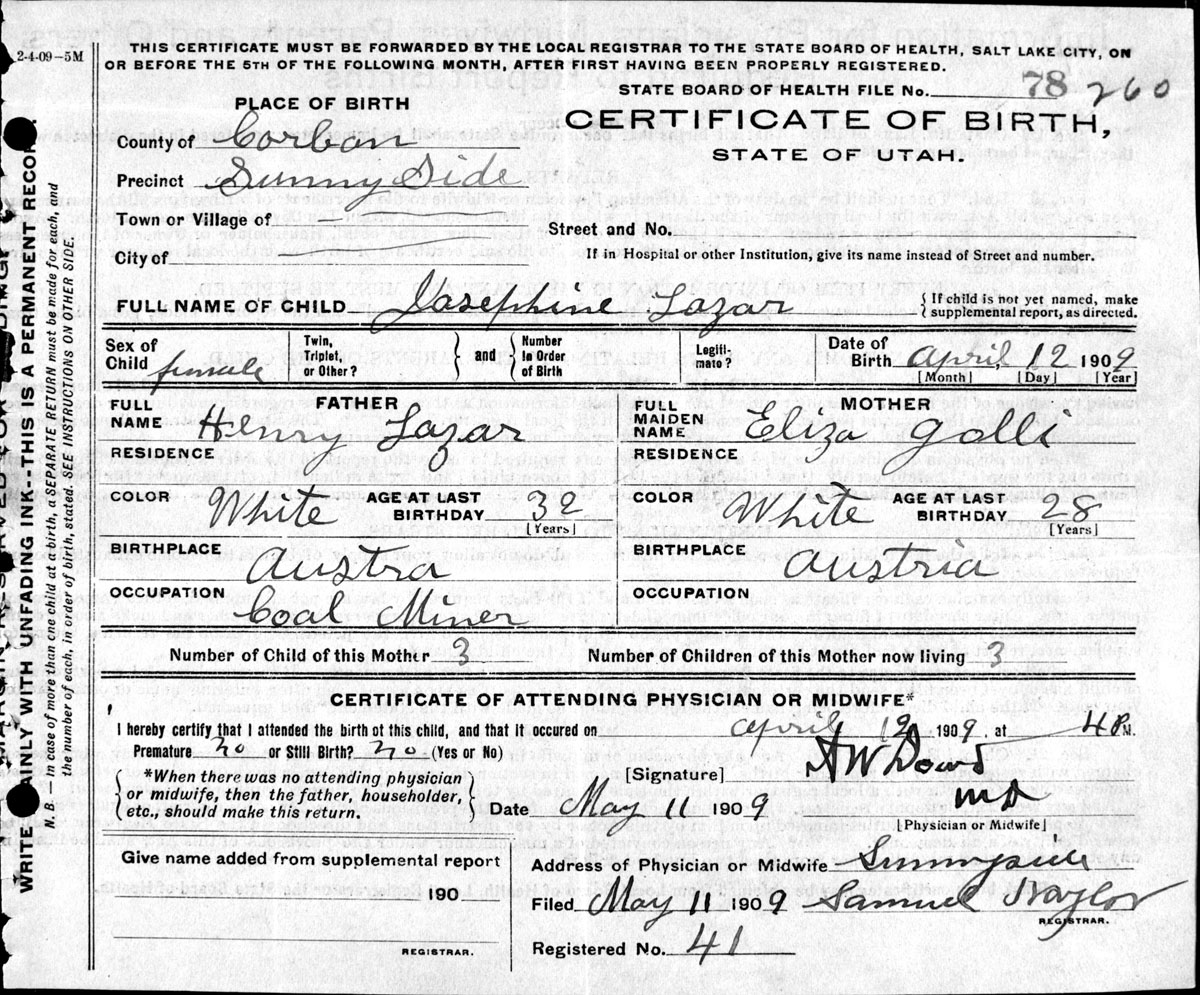 2-4-09-5M
THIS CERTIFICATE MUST BE FORWARDED BY THE LOCAL REGISTRAR TO THE STATE BOARD OF HEALTH, SALT LAKE CITY, ON
OR BEFORE THE 5TH OF THE FOLLOWING MONTH, AFTER FIRST HAVING BEEN PROPERLY REGISTERED.
STATE BOARD OF HEALTH FILE No. 78 260
PLACE OF BIRTH
CERTIFICATE OF BIRTH,
STATE OF UTAH.
County of Corbon
Precinct Sunny Side
Town or Village of
Street and No.
City of
If in Hospital or other Institution, give its name instead of Street and number.
FULL NAME OF CHILD Josephine Lazar
{ If child is not yet named, make
supplemental report, as directed.
Sex of
Child female
Twin,
Triplet,
or Other?
} and {
Number
in Order
of Birth
Legiti-
mate?
Date of
Birth April 12 1909
[Month] [Day] [Year]
FATHER
FULL
NAME Henry Lazar
MOTHER
FULL
MAIDEN
NAME Eliza Golli
RESIDENCE
RESIDENCE
COLOR White AGE AT LAST
BIRTHDAY 32
[Years]
COLOR White AGE AT LAST
BIRTHDAY 28
[Years]
BIRTHPLACE Austra
BIRTHPLACE Austria
OCCUPATION Coal Miner
OCCUPATION
Number of Child of this Mother 3
Number of Children of this Mother now living 3
CERTIFICATE OF ATTENDING PHYSICIAN OR MIDWIFE*
I hereby certify that I attended the birth of this child, and that it occured on April 12 1909, at 4 P M.
Premature no or Still Birth? no (Yes or No)
{ *When there was no attending physician
or midwife, then the father, householder,
etc., should make this return. }
[Signature] A W Dowd
M D
Date May 11 1909
[Physician or Midwife]
Give name added from supplemental report
190
REGISTRAR.
Address of Physician or Midwife Sunnyside
Filed May 11 1909 Samuel Naylor
REGISTRAR.
Registered No. 41
WRITE PLAINLY WITH UNFADING INK.-THIS IS A PERMANENT RECORD.
N. B.—In case of more than one child at a birth, a SEPARATE RETURN must be made for each, and
the number of each, in order of birth, stated. SEE INSTRUCTIONS ON OTHER SIDE.